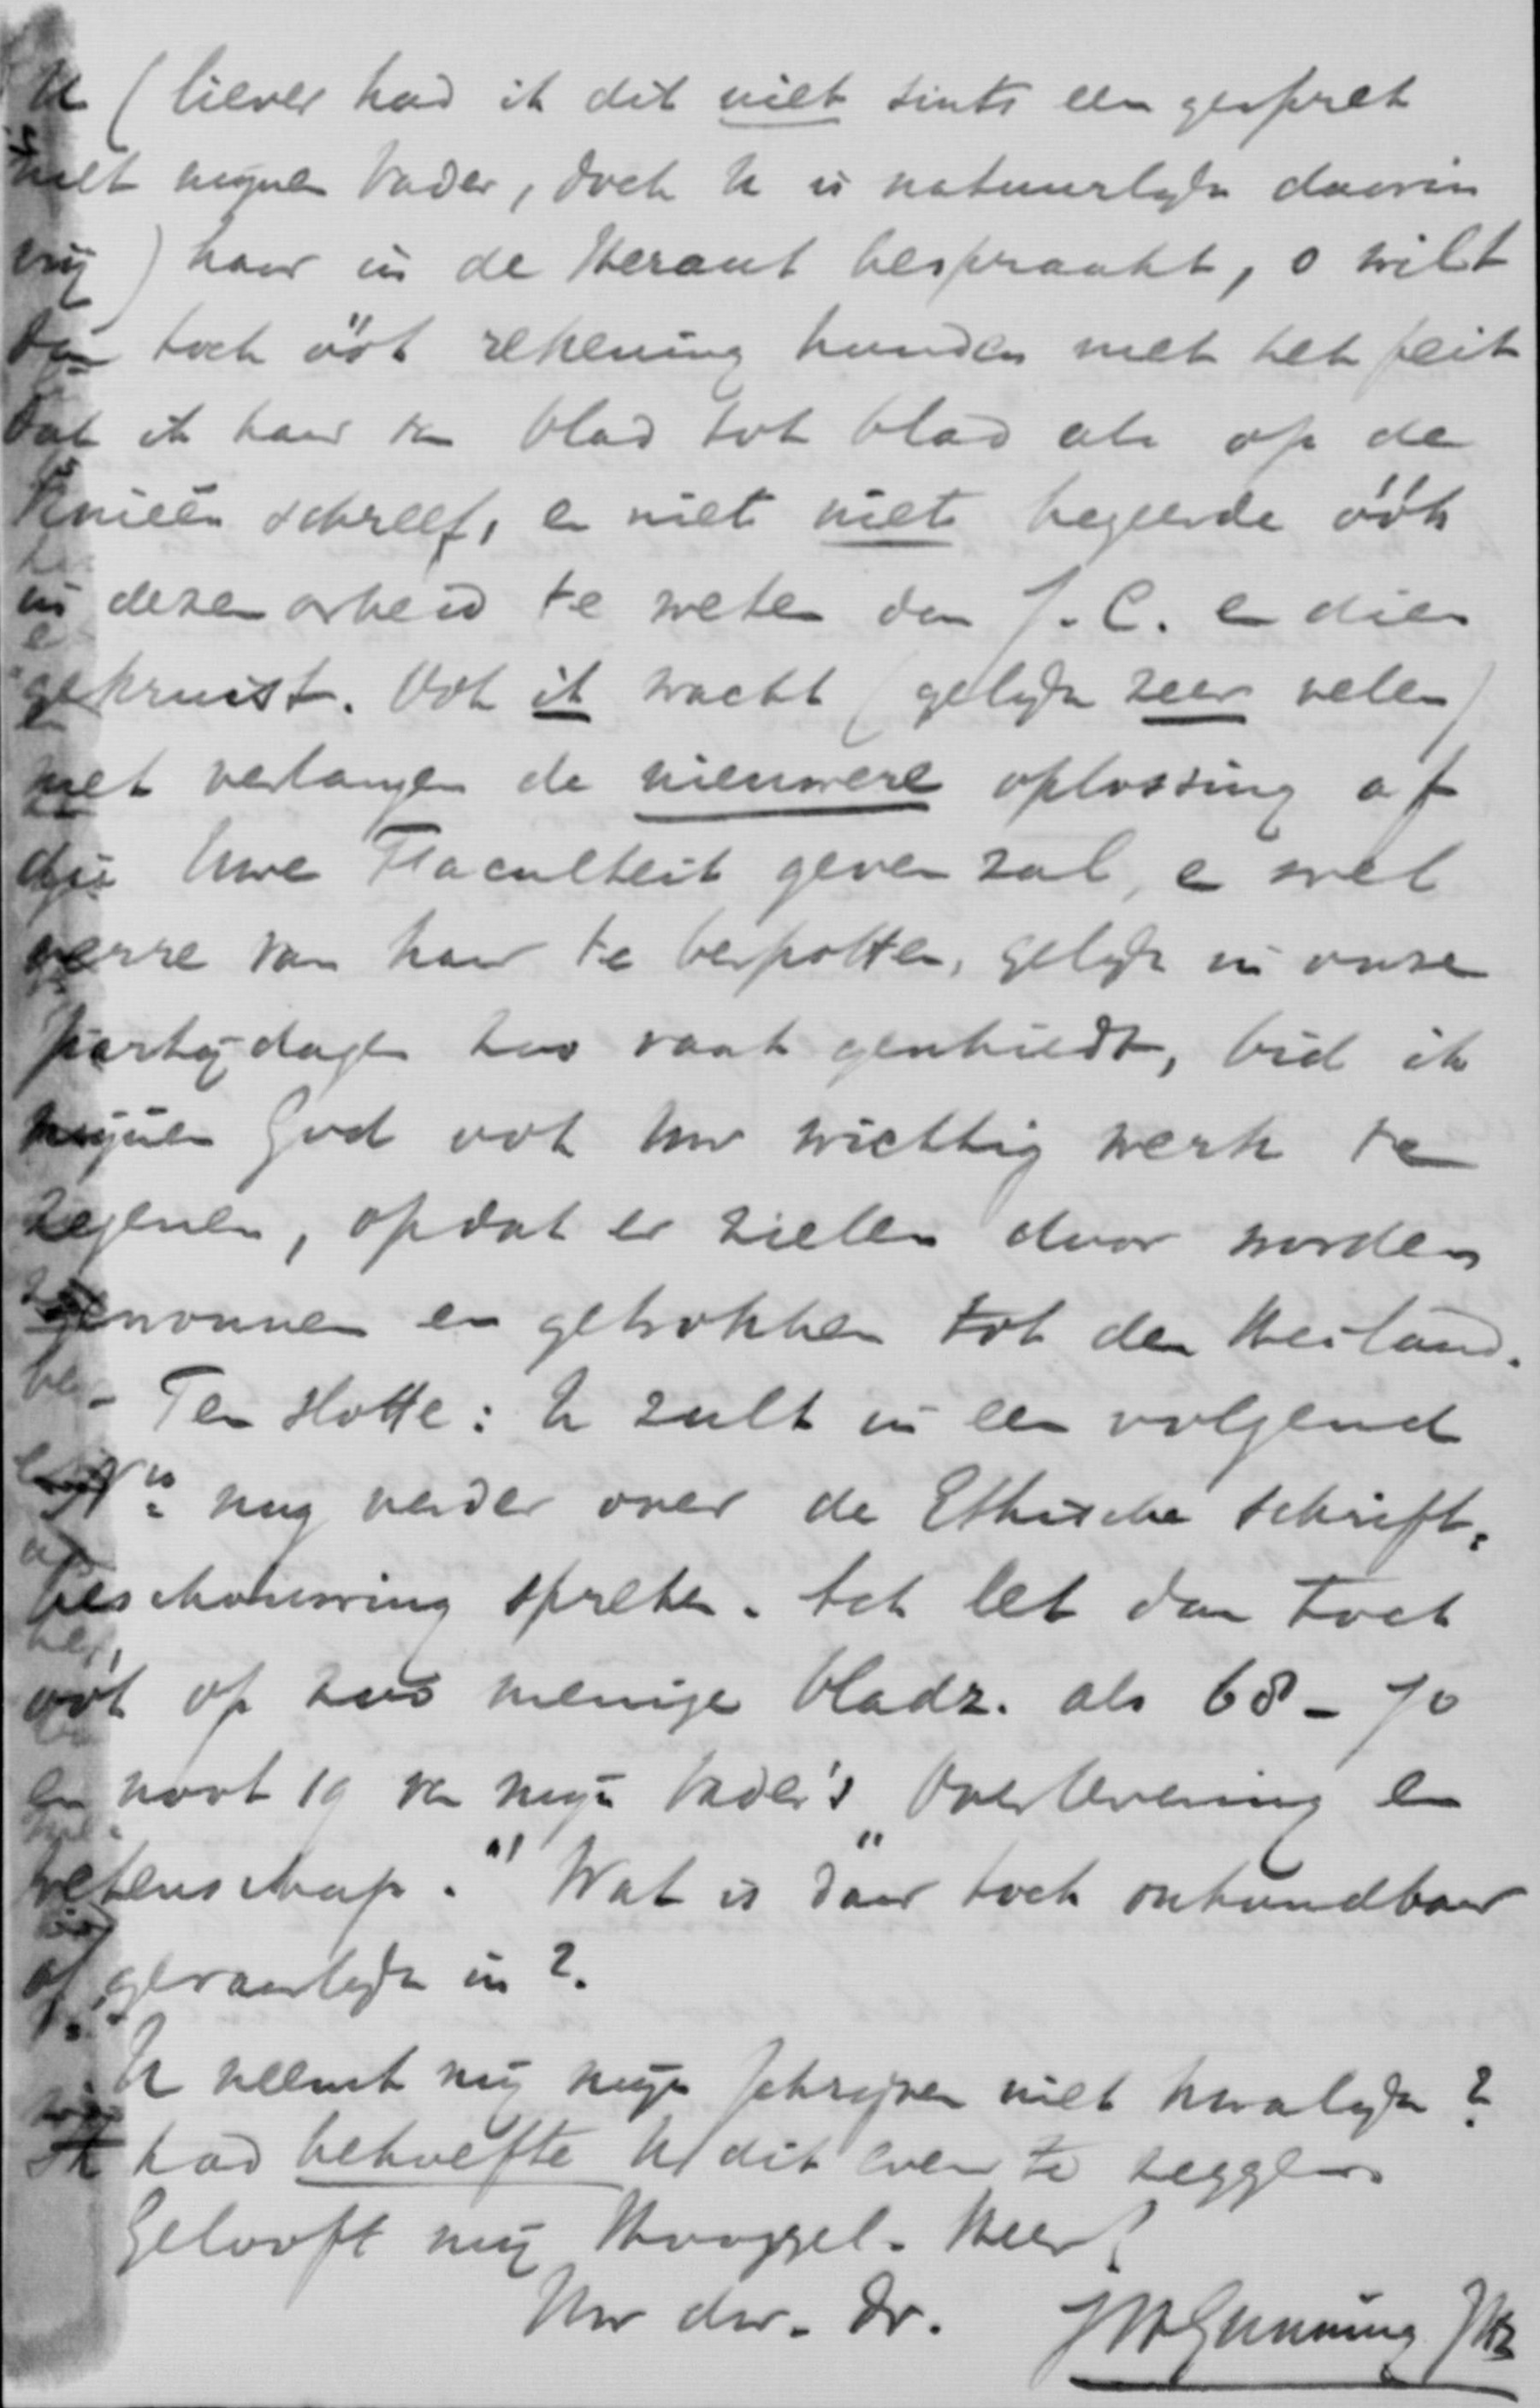 U (liever had ik dit niet sinds een gesprek
met mijnen Vader, doch U is natuurlijk daarin
vrij) haar in de Heraut bespraakt, o wilt
dan toch óók rekening houden met het feit
dat ik haar van blad tot blad als op de
knieën schreef, en niets niets begeerde óók
in dezen arbeid te weten dan J. C. en dien
gekruist. Ook ik wacht (gelijk zeer velen)
met verlangen de nieuwere oplossing af
die Uwe Faculteit geven zal, en wel
verre van haar te bespotten, gelijk in onze
partijdagen zoo vaak geschiedt, bid ik
mijnen God ook uw wichtig werk te
zegenen, opdat er zielen door worden
gewonnen en getrokken tot den Heiland.
- Ten slotte: U zult in een volgend
No nog verder over de Ethische Schrift-
beschouwing spreken. Ach let dan toch
óók op zoo menige bladz. als 68-70
en noot 19 van mijn Vader's „Overlevering en
wetenschap." Wat is dáár toch onhoudbaar
of gevaarlijk in?
U neemt mij mijn schrijven niet kwalijk?
Ik had behoefte U dit even te zeggen.
Gelooft mij Hooggel. Heer!
Uw dw. dr. JHGunning JHz